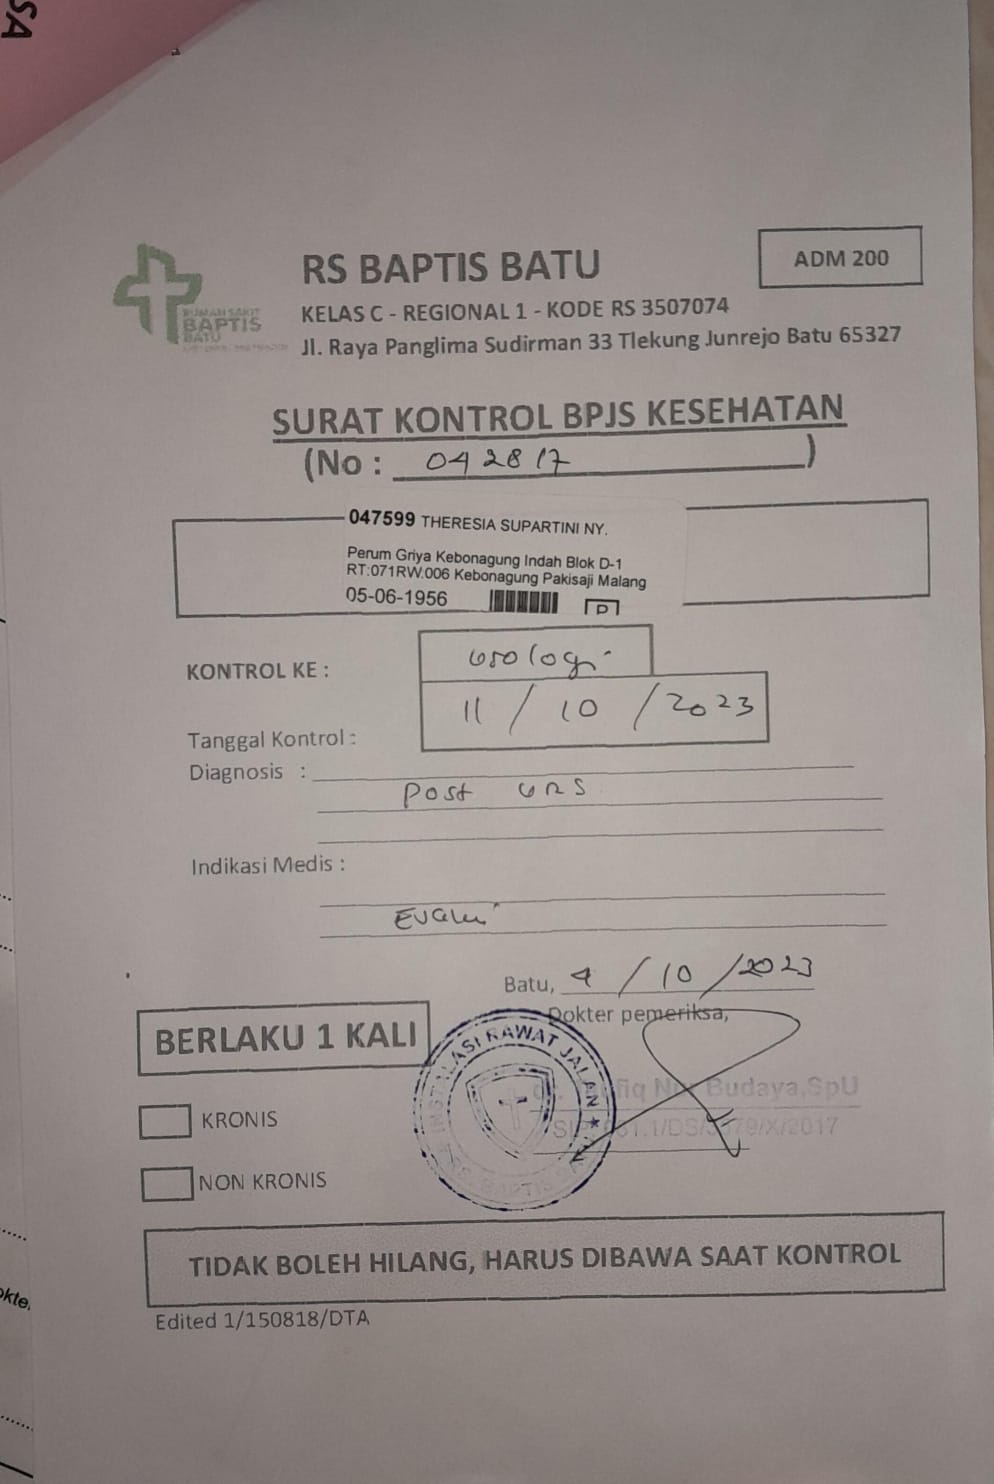 SA
RS BAPTIS BATU
ADM 200
RUMAH SAKIT
BAPTIS
BATU
KELAS C - REGIONAL 1 - KODE RS 3507074
Jl. Raya Panglima Sudirman 33 Tlekung Junrejo Batu 65327
SURAT KONTROL BPJS KESEHATAN
(No : 042817)
047599 THERESIA SUPARTINI NY.
Perum Griya Kebonagung Indah Blok D-1
RT:071RW.006 Kebonagung Pakisaji Malang
05-06-1956 P
KONTROL KE : urologi
Tanggal Kontrol : 11 / 10 / 2023
Diagnosis :
Post URS
Indikasi Medis :
Evalu
Batu, 4 / 10 / 2023
Dokter pemeriksa,
BERLAKU 1 KALI
INSTALASI RAWAT JALAN
BAPTIS
Budaya,SpU
KRONIS
NON KRONIS
TIDAK BOLEH HILANG, HARUS DIBAWA SAAT KONTROL
Edited 1/150818/DTA